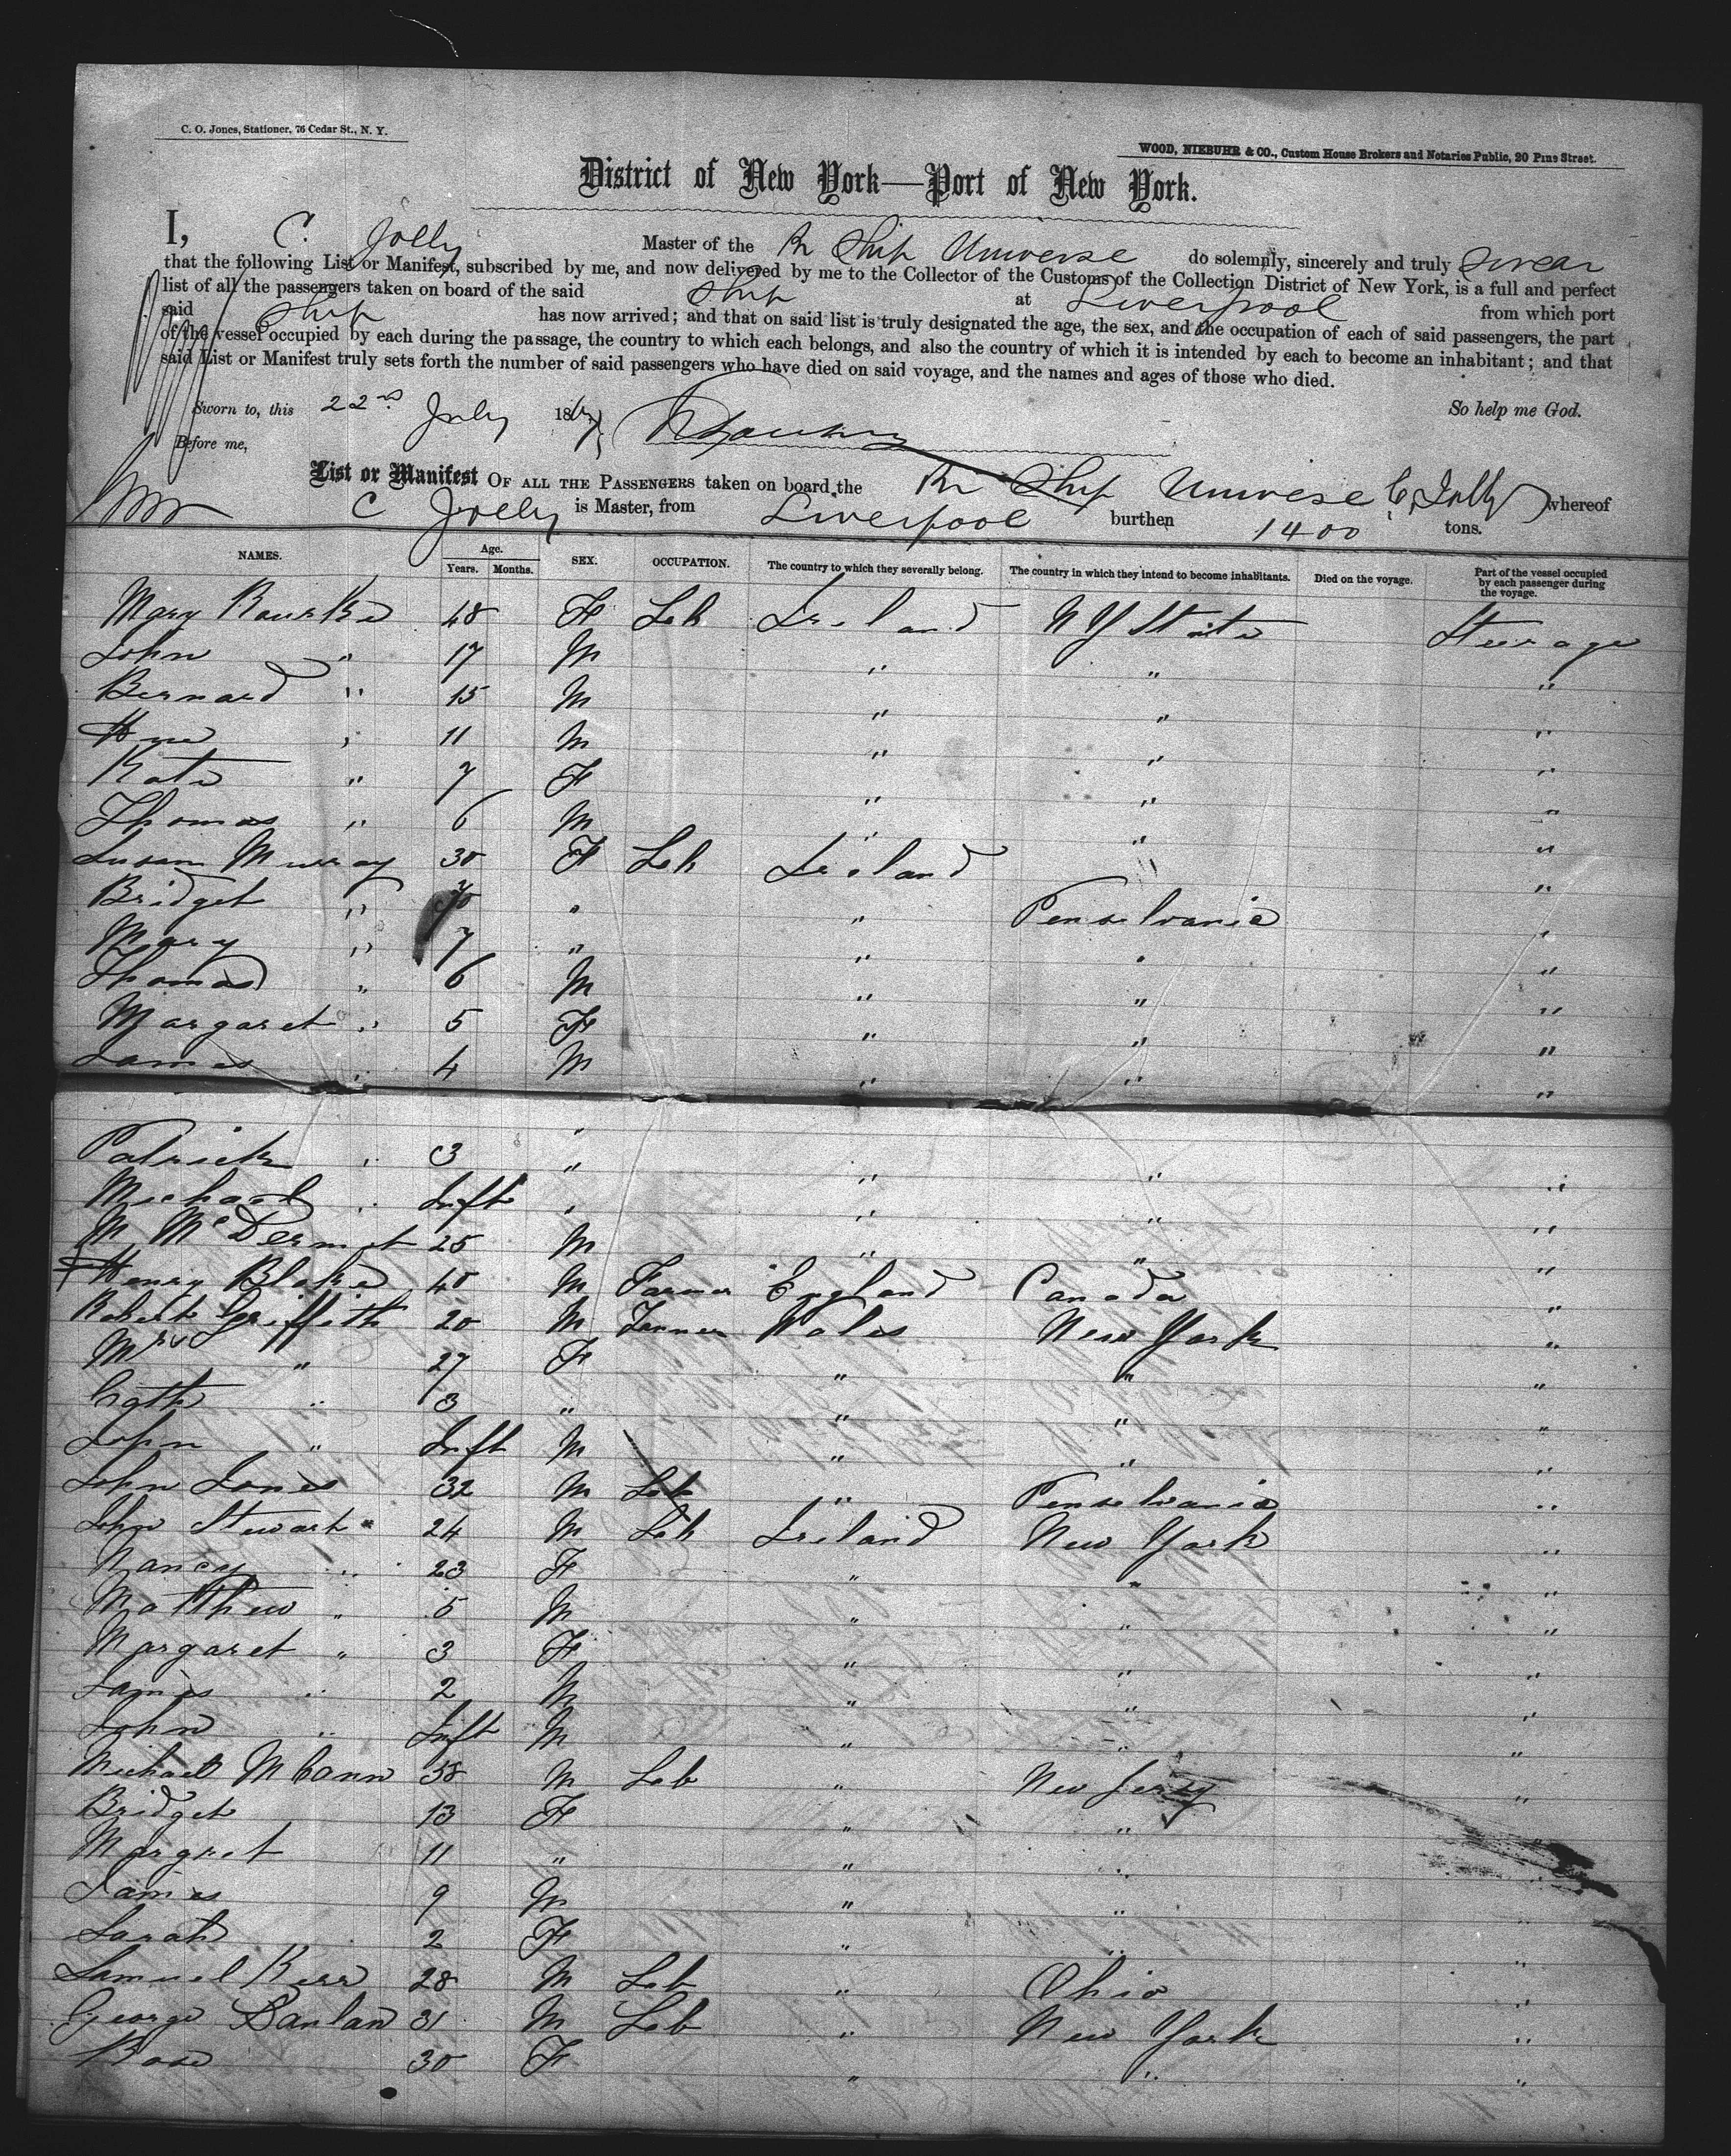 C. O. Jones, Stationer, 76 Cedar St., N. Y.
WOOD, NIEBUHR & CO., Custom House Brokers and Notaries Public, 20 Pine Street.
District of New York—Port of New York.
I, C. Jolly Master of the Br Ship Universe do solemnly, sincerely and truly swear
that the following List or Manifest, subscribed by me, and now delivered by me to the Collector of the Customs of the Collection District of New York, is a full and perfect
list of all the passengers taken on board of the said Ship at Liverpool from which port
said Ship has now arrived; and that on said list is truly designated the age, the sex, and the occupation of each of said passengers, the part
of the vessel occupied by each during the passage, the country to which each belongs, and also the country of which it is intended by each to become an inhabitant; and that
said List or Manifest truly sets forth the number of said passengers who have died on said voyage, and the names and ages of those who died.
Sworn to, this 22nd July 1867 So help me God.
Before me,
List or Manifest OF ALL THE PASSENGERS taken on board the Br Ship Universe C. Jolly whereof
C Jolly is Master, from Liverpool burthen 1400 tons.
NAMES. Age. Years. Months. SEX. OCCUPATION. The country to which they severally belong. The country in which they intend to become inhabitants. Died on the voyage. Part of the vessel occupied by each passenger during the voyage.
Mary Rourke 48 F Lab Ireland N Y State Steerage
John " 17 M " " "
Bernard " 15 M " " "
" 11 M " " "
Kate " 7 F " " "
Thomas " 6 M " " "
Susan Murray 30 F Lab Ireland " "
Bridget " " " Penselvania "
Mary " 7 " " " "
Thomas " 6 M " " "
Margaret " 5 F " " "
James " 4 M " " "
Patrick " 3 " " " "
Michael " Inft " " " "
M McDermot 25 M " " "
Henry Blake 40 M Farmer England Canada "
Robert Griffith 20 M Farmer Wales New York "
Mrs " 27 F " " "
Cath " 3 " " " "
John " Inft M " " "
John Jones 32 M Lab " Penselvania "
John Stewart 24 M Lab Ireland New York "
Nancy " 23 F " " "
Matthew " 5 M " " "
Margaret " 3 F " " "
James " 2 M " " "
John " Inft M " " "
Michael McCann 38 M Lab " New Jersy "
Bridget 13 F " " "
Margret 11 " " " "
James 9 M " " "
Sarah 2 F " " "
Samuel Kerr 28 M Lab " Ohio "
George Banlan 31 M Lab " New York "
Rose 30 F " " "